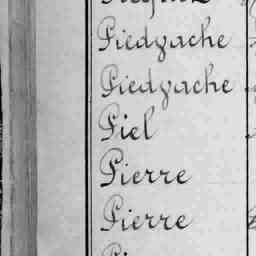 Piedvache
Piedvache
Piel
Pierre
Pierre